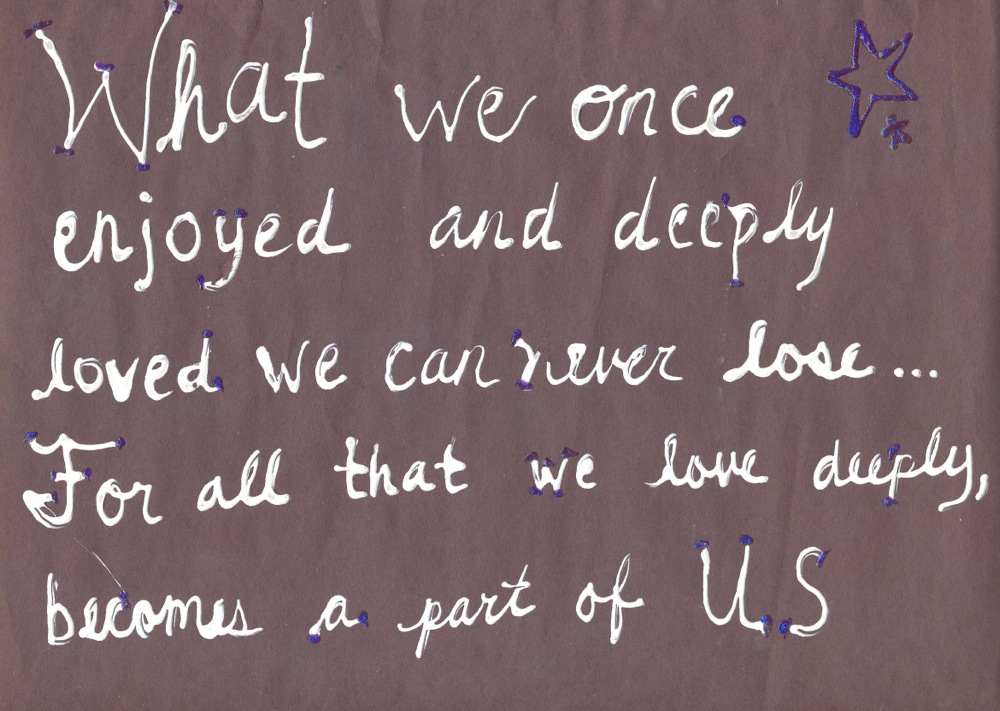 What we once
enjoyed and deeply
loved we can never lose...
For all that we love deeply,
becomes a part of U.S